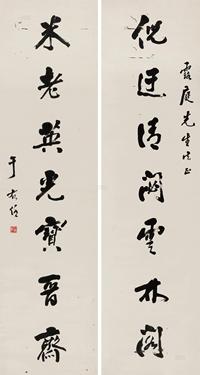 霞庭先生法正
倪迂清閟雲林閣
米老英光寶晉齋
于右任